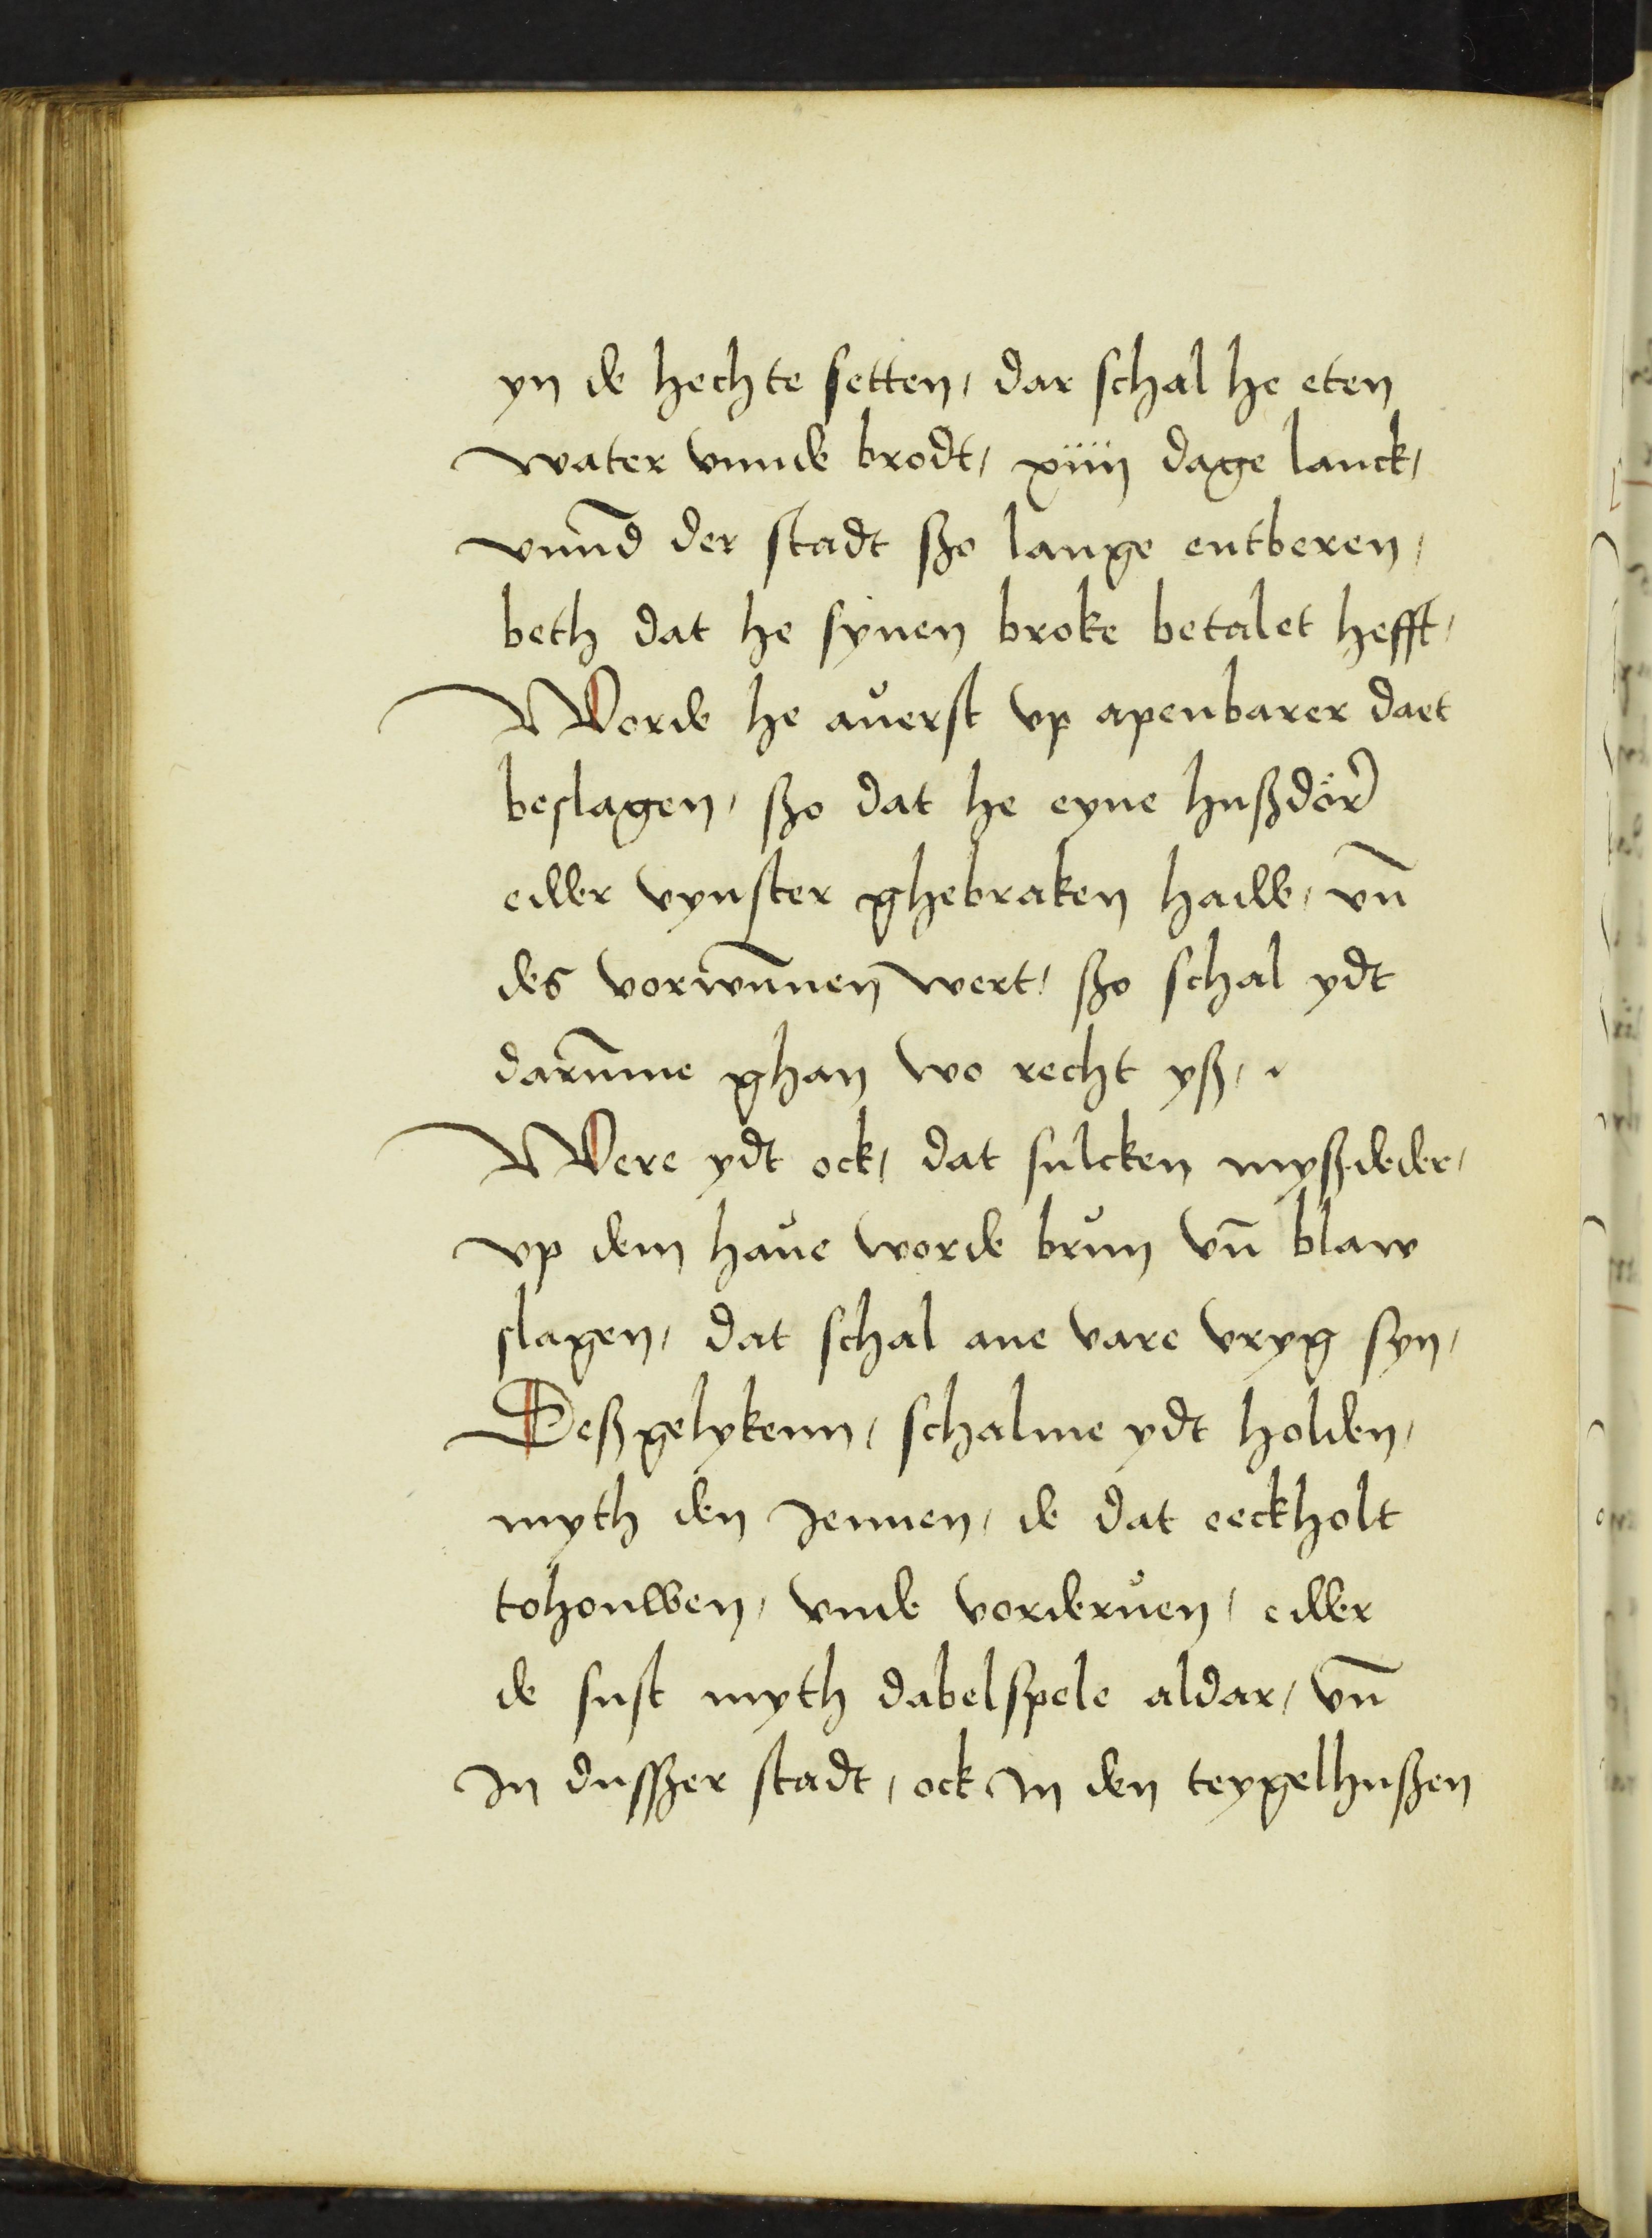 yn de hechte setten, dar schal he eten
water vnnde brodt, xiiij dage lanck,
vnnd̄ der stadt sßo lange entberen,
beth dat he synen broke betalet hefft,
Worde he auerst vp apenbarer daet
beslagen, sßo dat he eyne hußdör̄
edder vynster ghebraken hadde, vn̄
des vorwūnen wert, sßo schal ydt
darūme ghan wo recht yß,
Were ydt ock, dat sulcken myßdeder,
vp dem haue worde brun vn̄ blaw
slagen, dat schal ane vare vryg syn,
Deßgelykenn, schalme ydt holden,
myth den Jennen, de dat eeckholt
tohouwen, vnde vorderuen, edder
de sust myth dabelspele aldar, vn̄
In dusßer stadt, ock In den teygelhußen